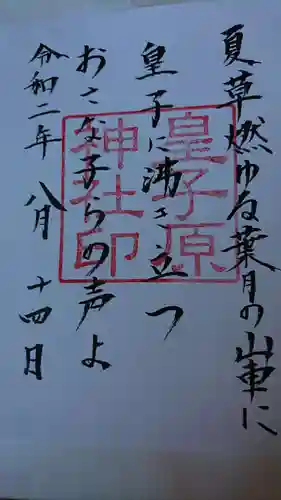 夏草燃ゆる葉月の山車に
皇子に沸き立つ
おさな子らの声よ
令和二年 八月 十四日
皇子原
神社印